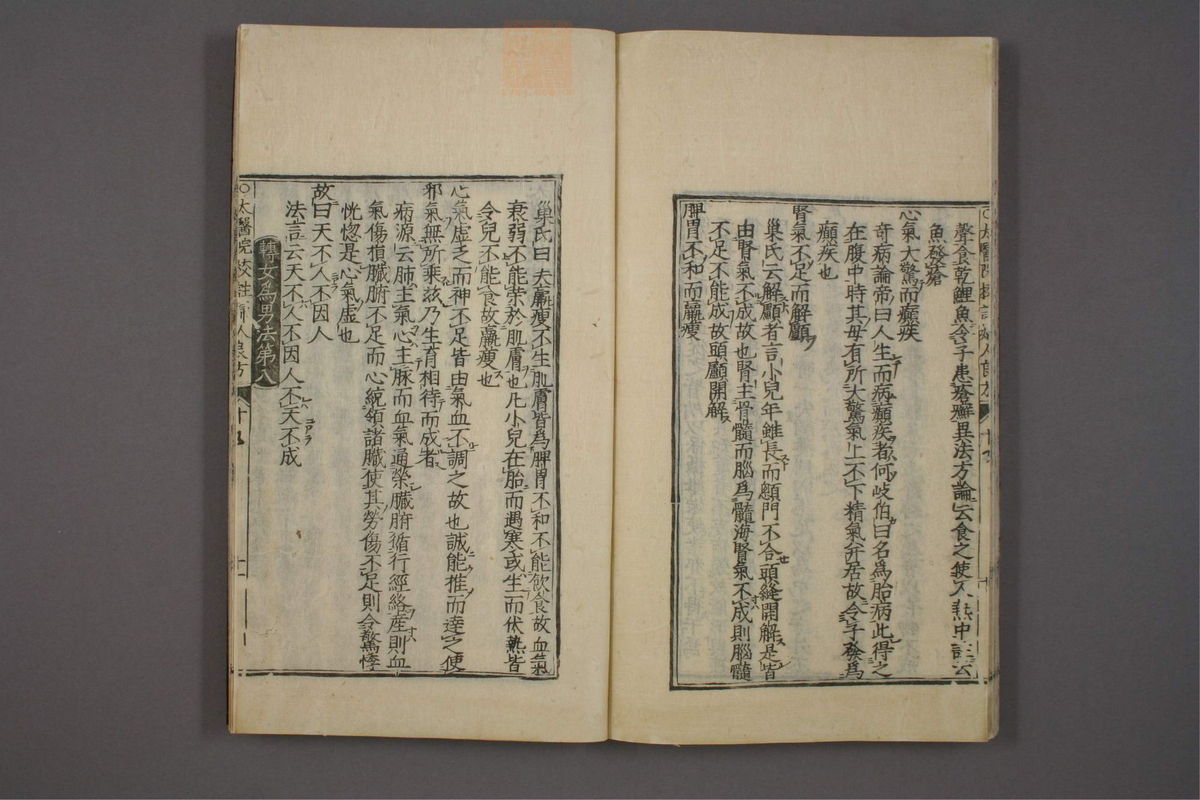 聲食乾鯉魚令子患瘡癬異法方論云食之使人熱中註云
魚發瘡
心氣大驚而癲疾
奇病論帝曰人生而病癲疾者何岐伯曰名為胎病此得之
在腹中時其母有所大驚氣上不下精氣并居故令子發為
癲疾也
腎氣不足而解顱
巢氏云解顱者言小兒年雖長而顖門不合頭縫開解是皆
由腎氣不成故也腎主骨髓而腦為髓海腎氣不成則腦髓
不足不能成故頭顱開解
脾胃不和而羸瘦
巢氏曰夫羸瘦不生肌膚皆為脾胃不和不能飲食故血氣
衰弱不能榮於肌膚也凡小兒在胎而遇寒或生而伏熱皆
令兒不能食故羸瘦也
心氣虛乏而神不足皆由氣血不調之故也誠能推而達之使
邪氣無所乘玆乃生育相待而成者
病源云肺主氣心主脉而血氣通榮臟腑循行經絡産則血
氣傷損臟腑不足而心統領諸臟使其勞傷不足則令驚悸
恍惚是心氣虛也
故曰天不人不因人
法言云天不人不因人不天不成
轉女為男法第八
太醫院校註婦人良方 十